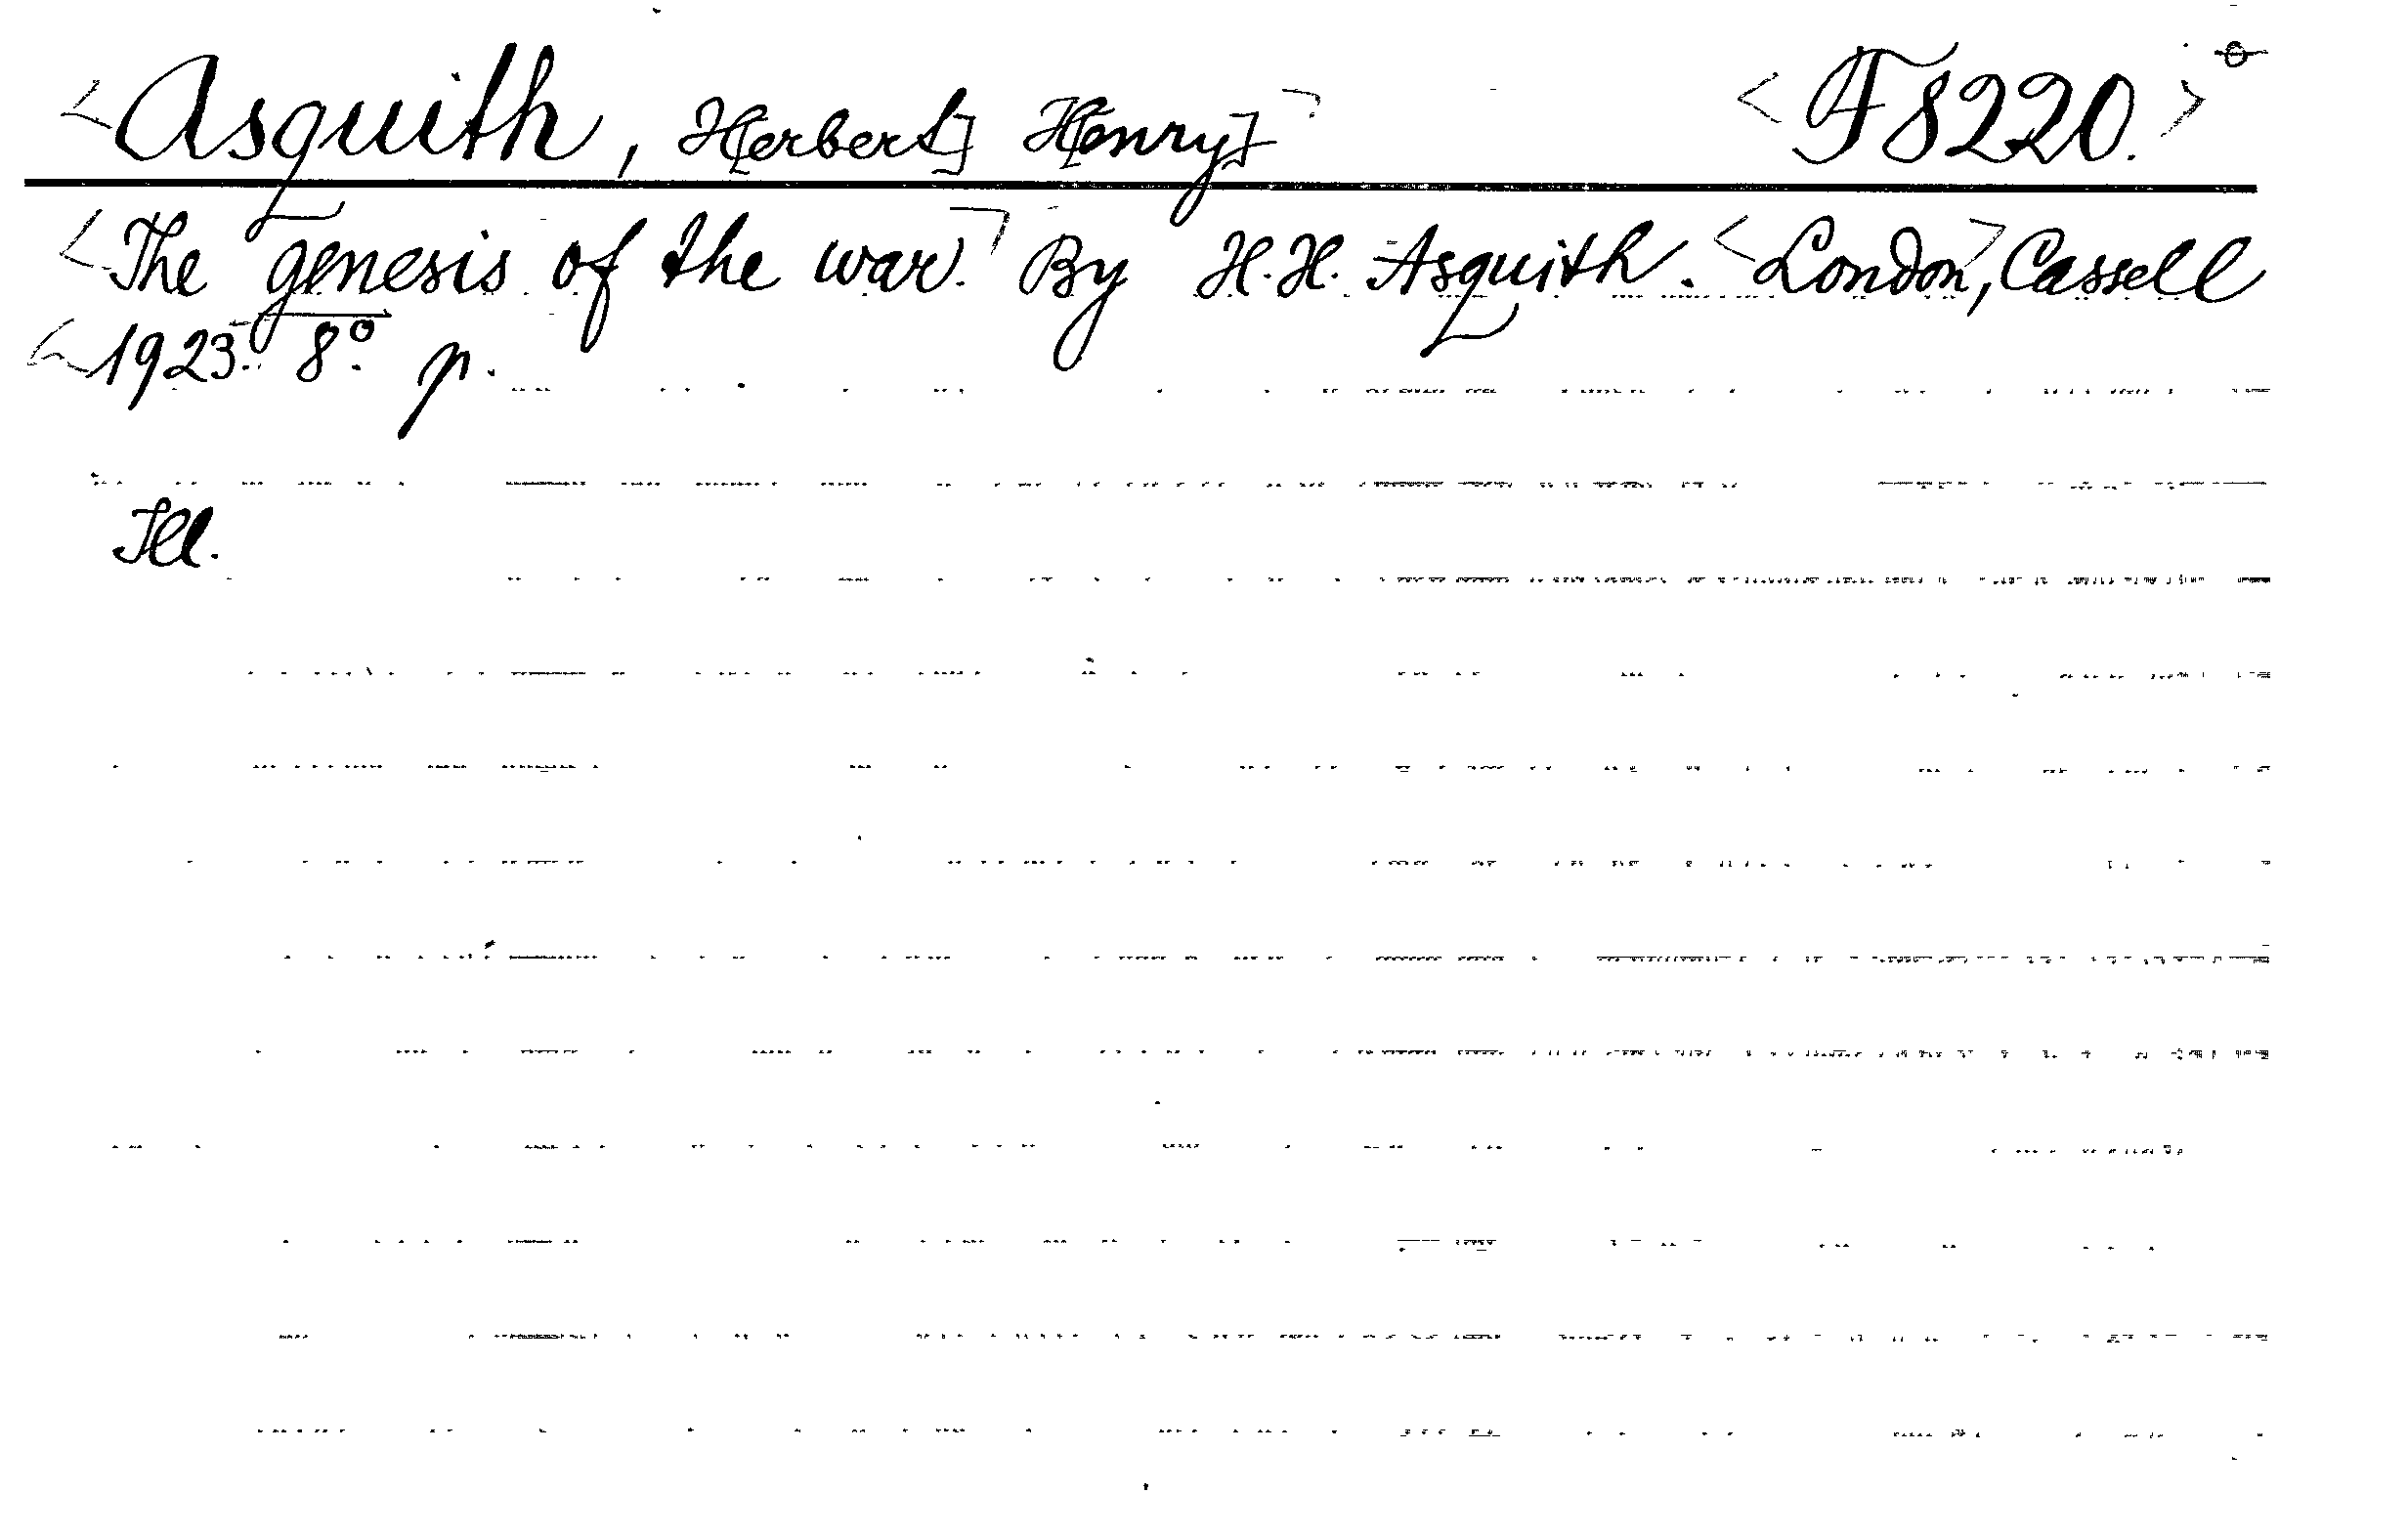 <Asquith, H[erbert] H[enry]> <F8220.>
<The genesis of the war.> By H.H. Asquith. <London>, Cassell
<1923. 8º. p.
Ill.